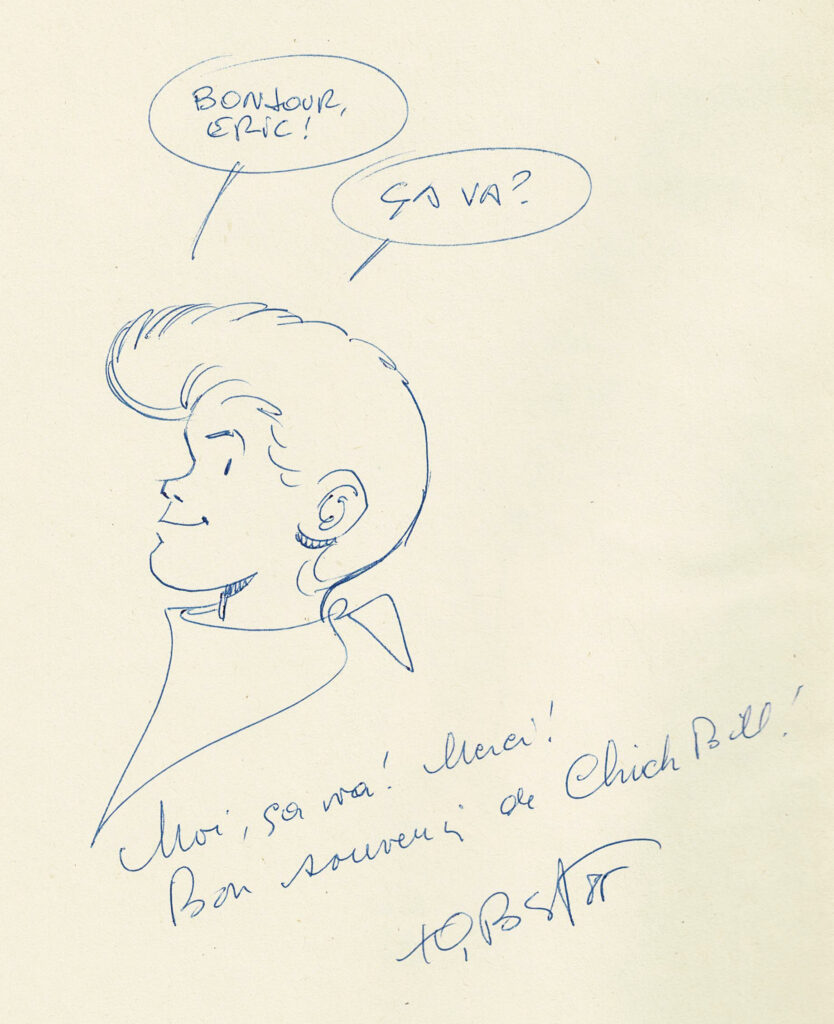 BONJOUR,
ERIC!
ÇA VA?
Moi, ça va! Merci!
Bon souvenir de Chick Bill!